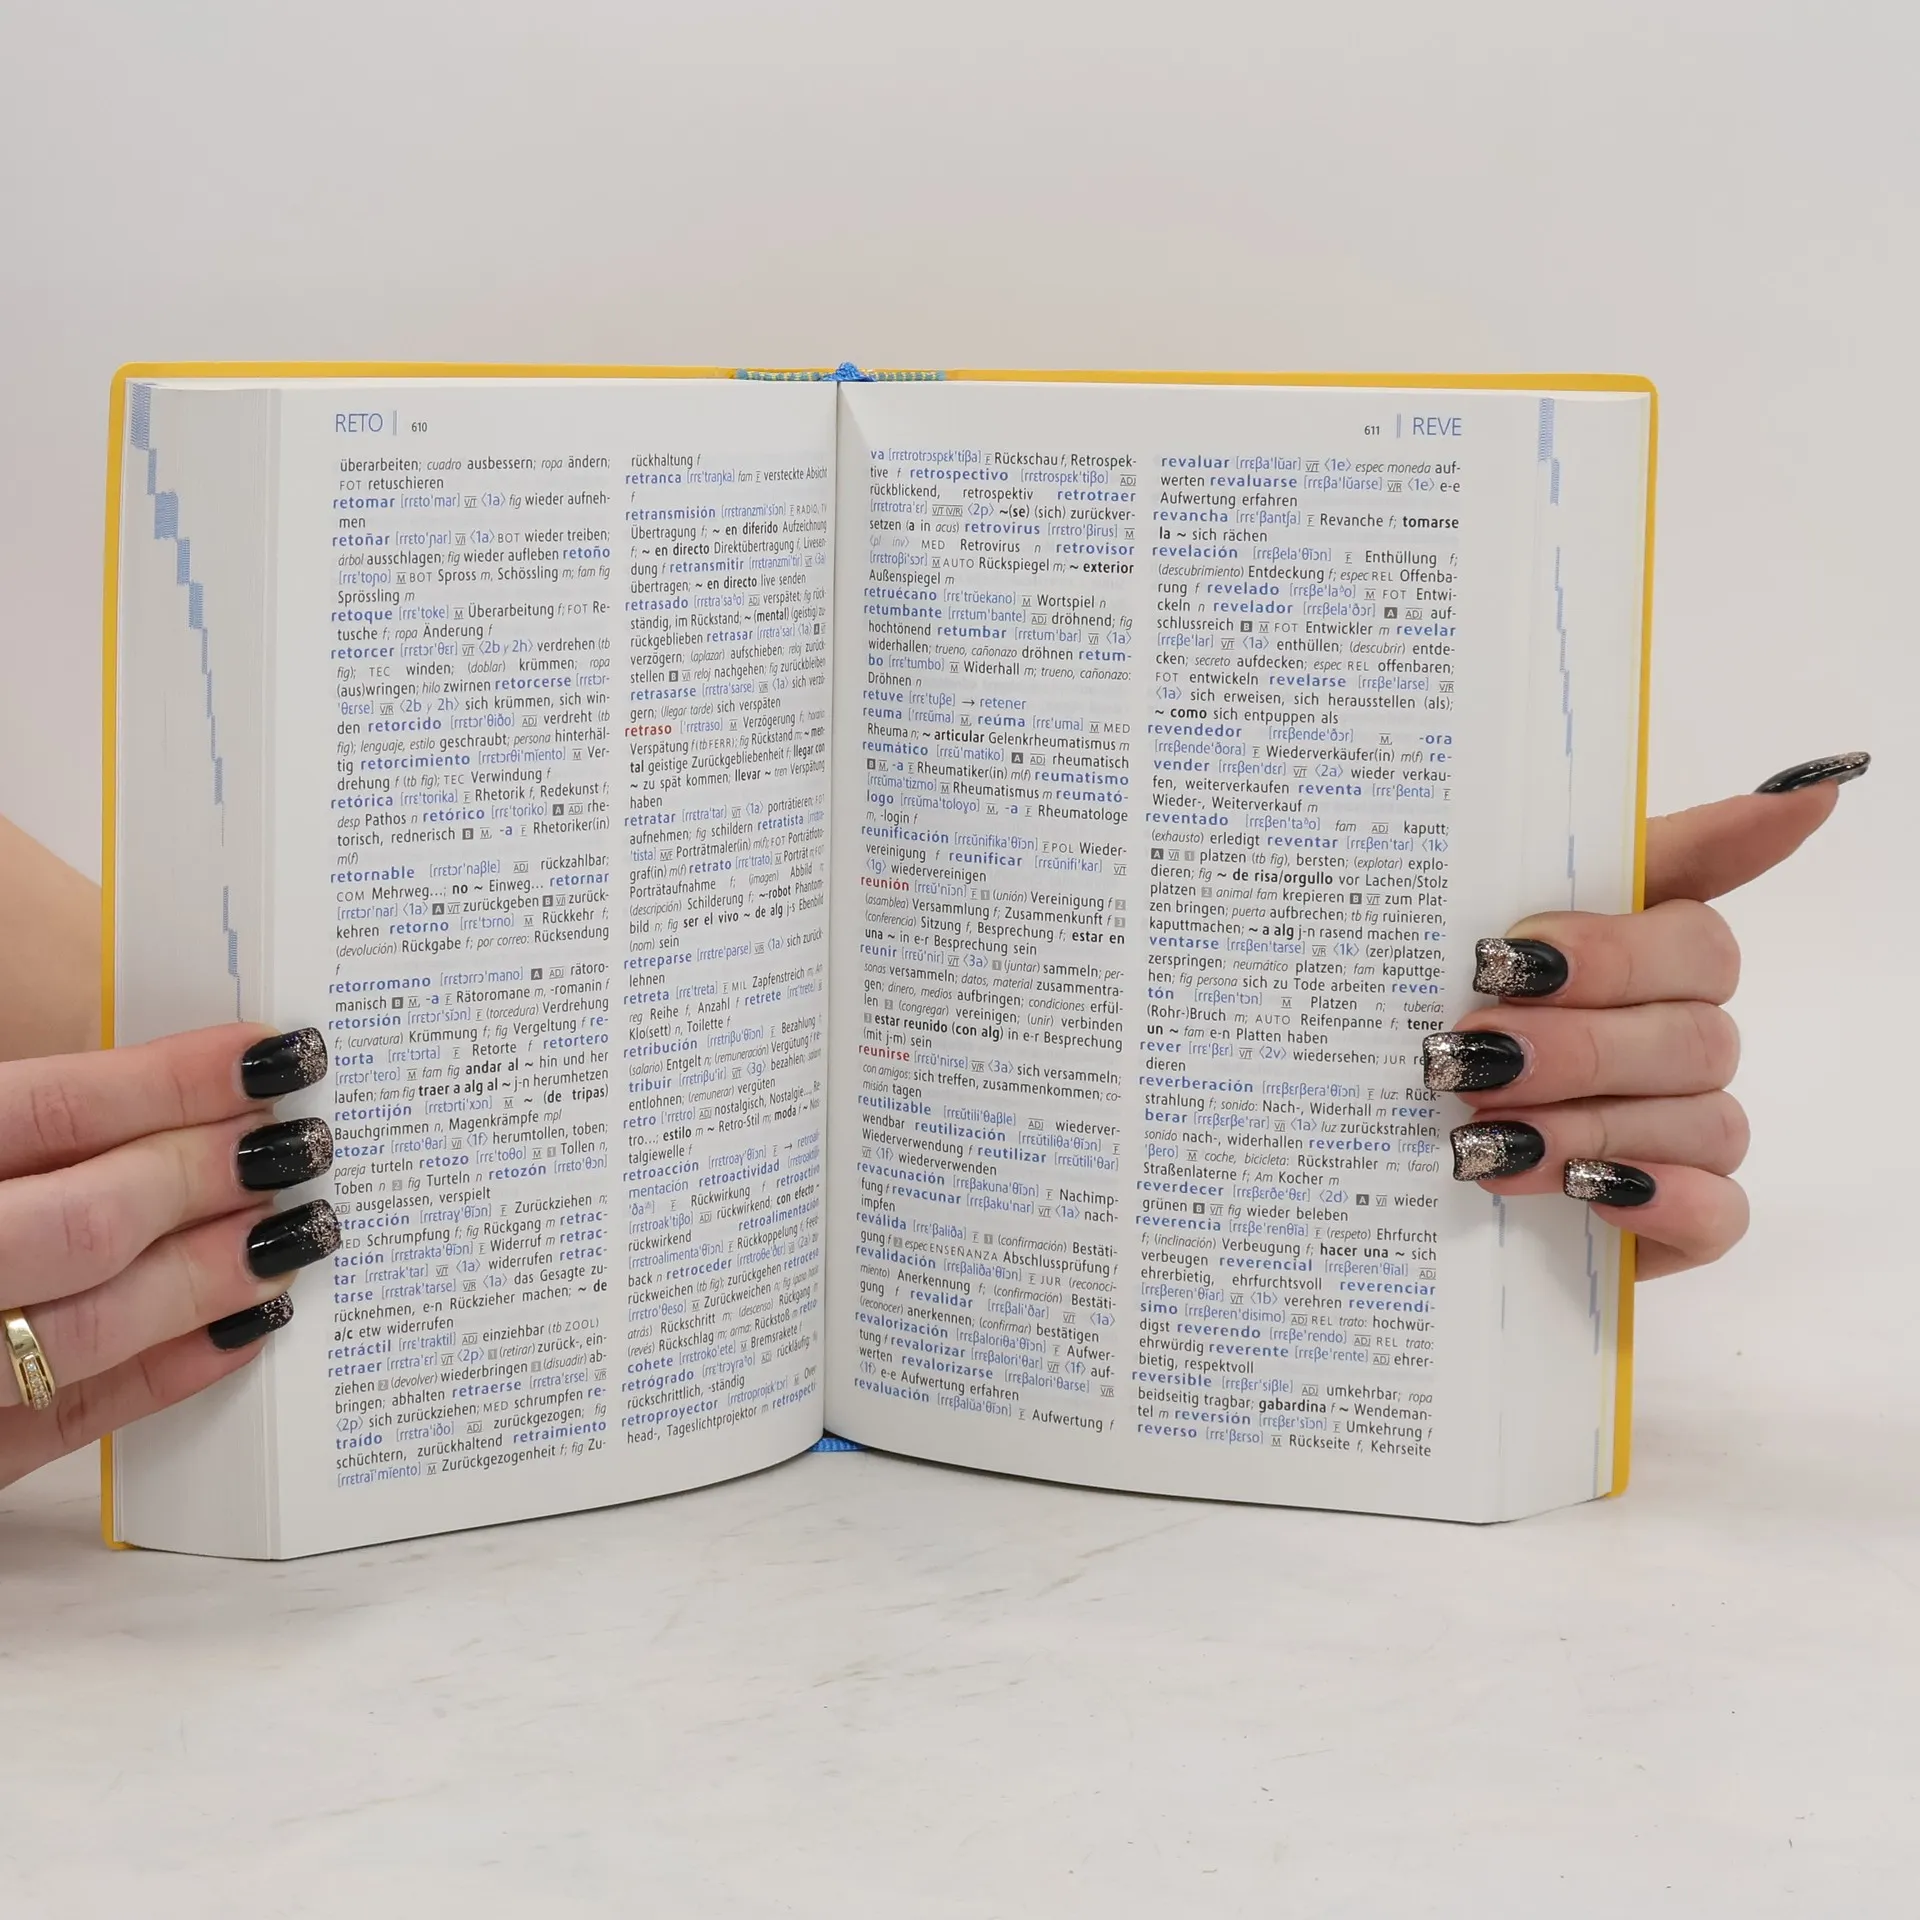 RETO | 610
überarbeiten; cuadro ausbessern; ropa ändern;
FOT retuschieren
retomar [rrɛto'mar] V/T ⟨1a⟩ fig wieder aufneh-
men
retoñar [rrɛto'ɲar] V/I ⟨1a⟩ BOT wieder treiben;
árbol ausschlagen; fig wieder aufleben retoño
[rrɛ'toɲo] M BOT Spross m, Schössling m; fam fig
Sprössling m
retoque [rrɛ'toke] M Überarbeitung f; FOT Re-
tusche f; ropa Änderung f
retorcer [rrɛtɔr'θɛr] V/T ⟨2b y 2h⟩ verdrehen (tb
fig); TEC winden; (doblar) krümmen; ropa
(aus)wringen; hilo zwirnen retorcerse [rrɛtɔr-
'θɛrse] V/R ⟨2b y 2h⟩ sich krümmen, sich win-
den retorcido [rrɛtɔr'θiðo] ADJ verdreht (tb
fig); lenguaje, estilo geschraubt; persona hinterhäl-
tig retorcimiento [rrɛtɔrθi'mĩento] M Ver-
drehung f (tb fig); TEC Verwindung f
retórica [rrɛ'torika] F Rhetorik f, Redekunst f;
desp Pathos n retórico [rrɛ'toriko] A ADJ rhe-
torisch, rednerisch B M, -a F Rhetoriker(in)
m(f)
retornable [rrɛtɔr'naβle] ADJ rückzahlbar;
COM Mehrweg...; no ~ Einweg... retornar
[rrɛtɔr'nar] ⟨1a⟩ A V/T zurückgeben B V/I zurück-
kehren retorno [rrɛ'tɔrno] M Rückkehr f;
(devolución) Rückgabe f; por correo: Rücksendung
f
retorromano [rrɛtɔrrɔ'mano] A ADJ rätoro-
manisch B M, -a F Rätoromane m, -romanin f
retorsión [rrɛtɔr'sĩɔn] F (torcedura) Verdrehung
f; (curvatura) Krümmung f; fig Vergeltung f re-
torta [rrɛ'tɔrta] F Retorte f retortero
[rrɛtɔr'tero] M fam fig andar al ~ hin und her
laufen; fam fig traer a alg al ~ j-n herumhetzen
retortijón [rrɛtɔrti'xɔn] M ~ (de tripas)
Bauchgrimmen n, Magenkrämpfe mpl
etozar [rrɛto'θar] V/I ⟨1f⟩ herumtollen, toben;
pareja turteln retozo [rrɛ'toθo] M 1 Tollen n,
Toben n 2 fig Turteln n retozón [rrɛto'θɔn]
ADJ ausgelassen, verspielt
etracción [rrɛtraɣ'θĩɔn] F Zurückziehen n;
MED Schrumpfung f; fig Rückgang m retrac-
tación [rrɛtrakta'θĩɔn] F Widerruf m retrac-
tar [rrɛtrak'tar] V/T ⟨1a⟩ widerrufen retrac-
tarse [rrɛtrak'tarse] V/R ⟨1a⟩ das Gesagte zu-
rücknehmen, e-n Rückzieher machen; ~ de
a/c etw widerrufen
retráctil [rrɛ'traktil] ADJ einziehbar (tb ZOOL)
retraer [rrɛtra'ɛr] V/T ⟨2p⟩ 1 (retirar) zurück-, ein-
ziehen 2 (devolver) wiederbringen 3 (disuadir) ab-
bringen; abhalten retraerse [rrɛtra'ɛrse] V/R
⟨2p⟩ sich zurückziehen; MED schrumpfen re-
traído [rrɛtra'iðo] ADJ zurückgezogen; fig
schüchtern, zurückhaltend retraimiento
[rrɛtraĩ'mĩento] M Zurückgezogenheit f; fig Zu-
rückhaltung f
retranca [rrɛ'traŋka] fam F versteckte Absicht
f
retransmisión [rrɛtranzmi'sĩɔn] F RADIO, TV
Übertragung f; ~ en diferido Aufzeichnung
f; ~ en directo Direktübertragung f, Livesen-
dung f retransmitir [rrɛtranzmi'tir] V/T ⟨3a⟩
übertragen; ~ en directo live senden
retrasado [rrɛtra'saðo] ADJ verspätet; fig rück-
ständig, im Rückstand; ~ (mental) (geistig) zu-
rückgeblieben retrasar [rrɛtra'sar] ⟨1a⟩ A V/T
verzögern; (aplazar) aufschieben; reloj zurück-
stellen B V/I reloj nachgehen; fig zurückbleiben
retrasarse [rrɛtra'sarse] V/R ⟨1a⟩ sich verzö-
gern; (llegar tarde) sich verspäten
retraso [rrɛ'traso] M Verzögerung f; horario
Verspätung f (tb FERR); fig Rückstand m; ~ men-
tal geistige Zurückgebliebenheit f; llegar con
~ zu spät kommen; llevar ~ tren Verspätung
haben
retratar [rrɛtra'tar] V/T ⟨1a⟩ porträtieren; FOT
aufnehmen; fig schildern retratista [rrɛtra-
'tista] M/F Porträtmaler(in) m(f); FOT Porträtfoto-
graf(in) m(f) retrato [rrɛ'trato] M Porträt n; FOT
Porträtaufnahme f; (imagen) Abbild n;
(descripción) Schilderung f; ~-robot Phantom-
bild n; fig ser el vivo ~ de alg j-s Ebenbild
(nom) sein
retreparse [rrɛtre'parse] V/R ⟨1a⟩ sich zurück-
lehnen
retreta [rrɛ'treta] F MIL Zapfenstreich m; Am
reg Reihe f, Anzahl f retrete [rrɛ'trete] M
Klo(sett) n, Toilette f
retribución [rrɛtriβu'θĩɔn] F Bezahlung f;
(salario) Entgelt n; (remuneración) Vergütung f re-
tribuir [rrɛtriβu'ir] V/T ⟨3g⟩ bezahlen; salario
entlohnen; (remunerar) vergüten
retro ['rrɛtro] ADJ nostalgisch, Nostalgie..., Re-
tro...; estilo m ~ Retro-Stil m; moda f ~ Nos-
talgiewelle f
retroacción [rrɛtroaɣ'θĩɔn] F → retroali-
mentación retroactividad
F Rückwirkung f retroactivo
[rrɛtroak'tiβo] ADJ rückwirkend; con efecto ~
rückwirkend retroalimentación
[rrɛtroalimenta'θĩɔn] F Rückkoppelung f, Feed-
back n retroceder [rrɛtroθe'ðɛr] V/I ⟨2a⟩ zu-
rückweichen (tb fig); zurückgehen retroceso
[rrɛtro'θeso] M Zurückweichen n; fig (paso hacia
atrás) Rückschritt m; (descenso) Rückgang m;
(revés) Rückschlag m; arma: Rückstoß m retro-
cohete [rrɛtroko'ete] M Bremsrakete f
retrógrado [rrɛ'troɣraðo] ADJ rückläufig; fig
rückschrittlich, -ständig
retroproyector [rrɛtroprojɛk'tɔr] M Over-
head-, Tageslichtprojektor m retrospecti-
611 | REVE
va [rrɛtrɔspɛk'tiβa] F Rückschau f, Retrospek-
tive f retrospectivo [rrɛtrɔspɛk'tiβo] ADJ
rückblickend, retrospektiv retrotraer
[rrɛtrotra'ɛr] V/T (V/R) ⟨2p⟩ ~(se) (sich) zurückver-
setzen (a in acus) retrovirus [rrɛtro'βirus] M
⟨pl inv⟩ MED Retrovirus n retrovisor
[rrɛtroβi'sɔr] M AUTO Rückspiegel m; ~ exterior
Außenspiegel m
retruécano [rrɛ'trŭekano] M Wortspiel n
retumbante [rrɛtum'bante] ADJ dröhnend; fig
hochtönend retumbar [rrɛtum'bar] V/I ⟨1a⟩
widerhallen; trueno, cañonazo dröhnen retum-
bo [rrɛ'tumbo] M Widerhall m; trueno, cañonazo:
Dröhnen n
retuve [rrɛ'tuβe] → retener
reuma ['rrɛŭma] M, reúma [rrɛ'uma] M MED
Rheuma n; ~ articular Gelenkrheumatismus m
reumático [rrɛŭ'matiko] A ADJ rheumatisch
B M, -a F Rheumatiker(in) m(f) reumatismo
[rrɛŭma'tizmo] M Rheumatismus m reumató-
logo [rrɛŭma'toloɣo] M, -a F Rheumatologe
m, -login f
reunificación [rrɛŭnifika'θĩɔn] F POL Wieder-
vereinigung f reunificar [rrɛŭnifi'kar] V/T
⟨1g⟩ wiedervereinigen
reunión [rrɛŭ'nĩɔn] F 1 (unión) Vereinigung f 2
(asamblea) Versammlung f; Zusammenkunft f 3
(conferencia) Sitzung f, Besprechung f; estar en
una ~ in e-r Besprechung sein
reunir [rrɛŭ'nir] V/T ⟨3a⟩ 1 (juntar) sammeln; per-
sonas versammeln; datos, material zusammentra-
gen; dinero, medios aufbringen; condiciones erfül-
len 2 (congregar) vereinigen; (unir) verbinden
3 estar reunido (con alg) in e-r Besprechung
(mit j-m) sein
reunirse [rrɛŭ'nirse] V/R ⟨3a⟩ sich versammeln;
con amigos: sich treffen, zusammenkommen; co-
misión tagen
reutilizable [rrɛŭtili'θaβle] ADJ wiederver-
wendbar reutilización [rrɛŭtiliθa'θĩɔn] F
Wiederverwendung f reutilizar [rrɛŭtili'θar]
V/T ⟨1f⟩ wiederverwenden
revacunación [rrɛβakuna'θĩɔn] F Nachimp-
fung f revacunar [rrɛβaku'nar] V/T ⟨1a⟩ nach-
impfen
reválida [rrɛ'βaliða] F 1 (confirmación) Bestäti-
gung f 2 espec ENSEÑANZA Abschlussprüfung f
revalidación [rrɛβaliða'θĩɔn] F JUR (reconoci-
miento) Anerkennung f; (confirmación) Bestäti-
gung f revalidar [rrɛβali'ðar] V/T ⟨1a⟩
(reconocer) anerkennen; (confirmar) bestätigen
revalorización [rrɛβaloriθa'θĩɔn] F Aufwer-
tung f revalorizar [rrɛβalori'θar] V/T ⟨1f⟩ auf-
werten revalorizarse [rrɛβalori'θarse] V/R
⟨1f⟩ e-e Aufwertung erfahren
revaluación [rrɛβalŭa'θĩɔn] F Aufwertung f
revaluar [rrɛβa'lŭar] V/T ⟨1e⟩ espec moneda auf-
werten revaluarse [rrɛβa'lŭarse] V/R ⟨1e⟩ e-e
Aufwertung erfahren
revancha [rrɛ'βantʃa] F Revanche f; tomarse
la ~ sich rächen
revelación [rrɛβela'θĩɔn] F Enthüllung f;
(descubrimiento) Entdeckung f; espec REL Offenba-
rung f revelado [rrɛβe'laðo] M FOT Entwi-
ckeln n revelador [rrɛβela'ðɔr] A ADJ auf-
schlussreich B M FOT Entwickler m revelar
[rrɛβe'lar] V/T ⟨1a⟩ enthüllen; (descubrir) entde-
cken; secreto aufdecken; espec REL offenbaren;
FOT entwickeln revelarse [rrɛβe'larse] V/R
⟨1a⟩ sich erweisen, sich herausstellen (als);
~ como sich entpuppen als
revendedor [rrɛβende'ðɔr] M, -ora
[rrɛβende'ðora] F Wiederverkäufer(in) m(f) re-
vender [rrɛβen'dɛr] V/T ⟨2a⟩ wieder verkau-
fen, weiterverkaufen reventa [rrɛ'βenta] F
Wieder-, Weiterverkauf m
reventado [rrɛβen'taðo] fam ADJ kaputt;
(exhausto) erledigt reventar [rrɛβen'tar] ⟨1k⟩
A V/I 1 platzen (tb fig), bersten; (explotar) explo-
dieren; fig ~ de risa/orgullo vor Lachen/Stolz
platzen 2 animal fam krepieren B V/T zum Plat-
zen bringen; puerta aufbrechen; tb fig ruinieren,
kaputtmachen; ~ a alg j-n rasend machen re-
ventarse [rrɛβen'tarse] V/R ⟨1k⟩ (zer)platzen,
zerspringen; neumático platzen; fam kaputtge-
hen; fig persona sich zu Tode arbeiten reven-
tón [rrɛβen'tɔn] M Platzen n; tubería:
(Rohr-)Bruch m; AUTO Reifenpanne f; tener
un ~ fam e-n Platten haben
rever [rrɛ'βɛr] V/T ⟨2v⟩ wiedersehen; JUR re
dieren
reverberación [rrɛβɛrβera'θĩɔn] F luz: Rück-
strahlung f; sonido: Nach-, Widerhall m rever-
berar [rrɛβɛrβe'rar] V/I ⟨1a⟩ luz zurückstrahlen;
sonido nach-, widerhallen reverbero [rrɛβɛr-
'βero] M coche, bicicleta: Rückstrahler m; (farol)
Straßenlaterne f; Am Kocher m
reverdecer [rrɛβɛrðe'θɛr] ⟨2d⟩ A V/I wieder
grünen B V/T fig wieder beleben
reverencia [rrɛβe'renθĩa] F (respeto) Ehrfurcht
f; (inclinación) Verbeugung f; hacer una ~ sich
verbeugen reverencial [rrɛβeren'θĩal] ADJ
ehrerbietig, ehrfurchtsvoll reverenciar
[rrɛβeren'θĩar] V/T ⟨1b⟩ verehren reverendí-
simo [rrɛβeren'disimo] ADJ REL trato: hochwür-
digst reverendo [rrɛβe'rendo] ADJ REL trato:
ehrwürdig reverente [rrɛβe'rente] ADJ ehrer-
bietig, respektvoll
reversible [rrɛβɛr'siβle] ADJ umkehrbar; ropa
beidseitig tragbar; gabardina f ~ Wendeman-
tel m reversión [rrɛβɛr'sĩɔn] F Umkehrung f
reverso [rrɛ'βɛrso] M Rückseite f, Kehrseite